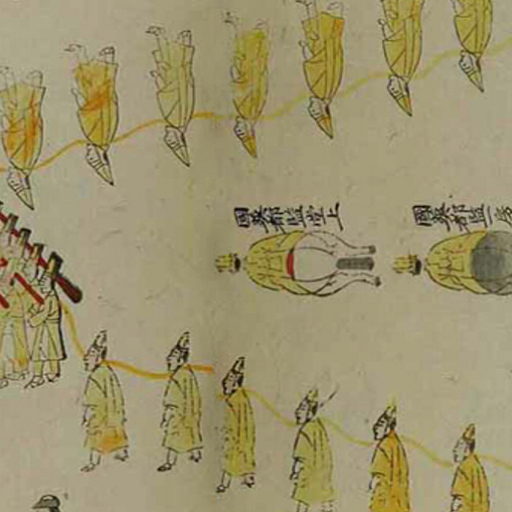 國葬都監堂上
國葬都監一房